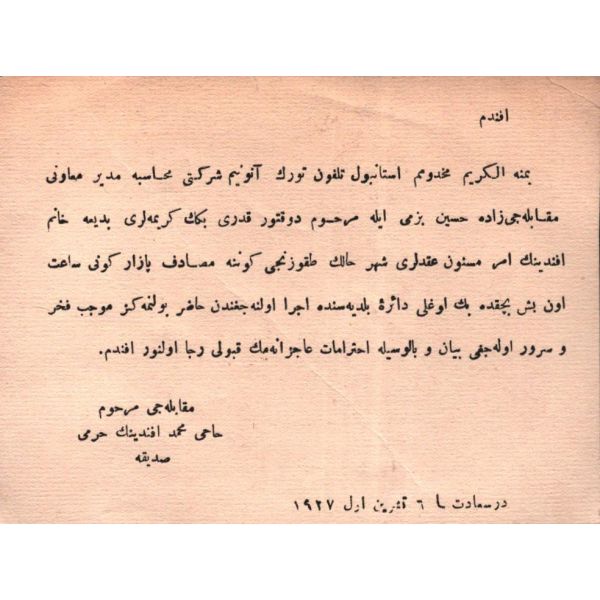 افندم
بمنه الكريم مخدومم استانبول تلفون تورك آنونيم شركتى محاسبه مدير معاونى
مقابله‌جى‌زاده حسين بزمى ايله مرحوم دوقتور قدرى بكك كريمه‌لرى بديعه خانم
افندينك امر مسنون عقدلرى شهر حالك طقوزنجى كوننه مصادف پازار كونى ساعت
اون بش بچقده بك اوغلى دائرۀ بلديه‌سنده اجرا اولنه‌جغندن حاضر بولنمه‌كز موجب فخر
و سرور اوله‌جغى بيان و بالوسيله احترامات عاجزانه‌مك قبولى رجا اولنور افندم.
مقابله‌جى مرحوم
حاجى محمد افندينك حرمى
صديقه
درسعادت ٦ تشرين اول ١٩٢٧